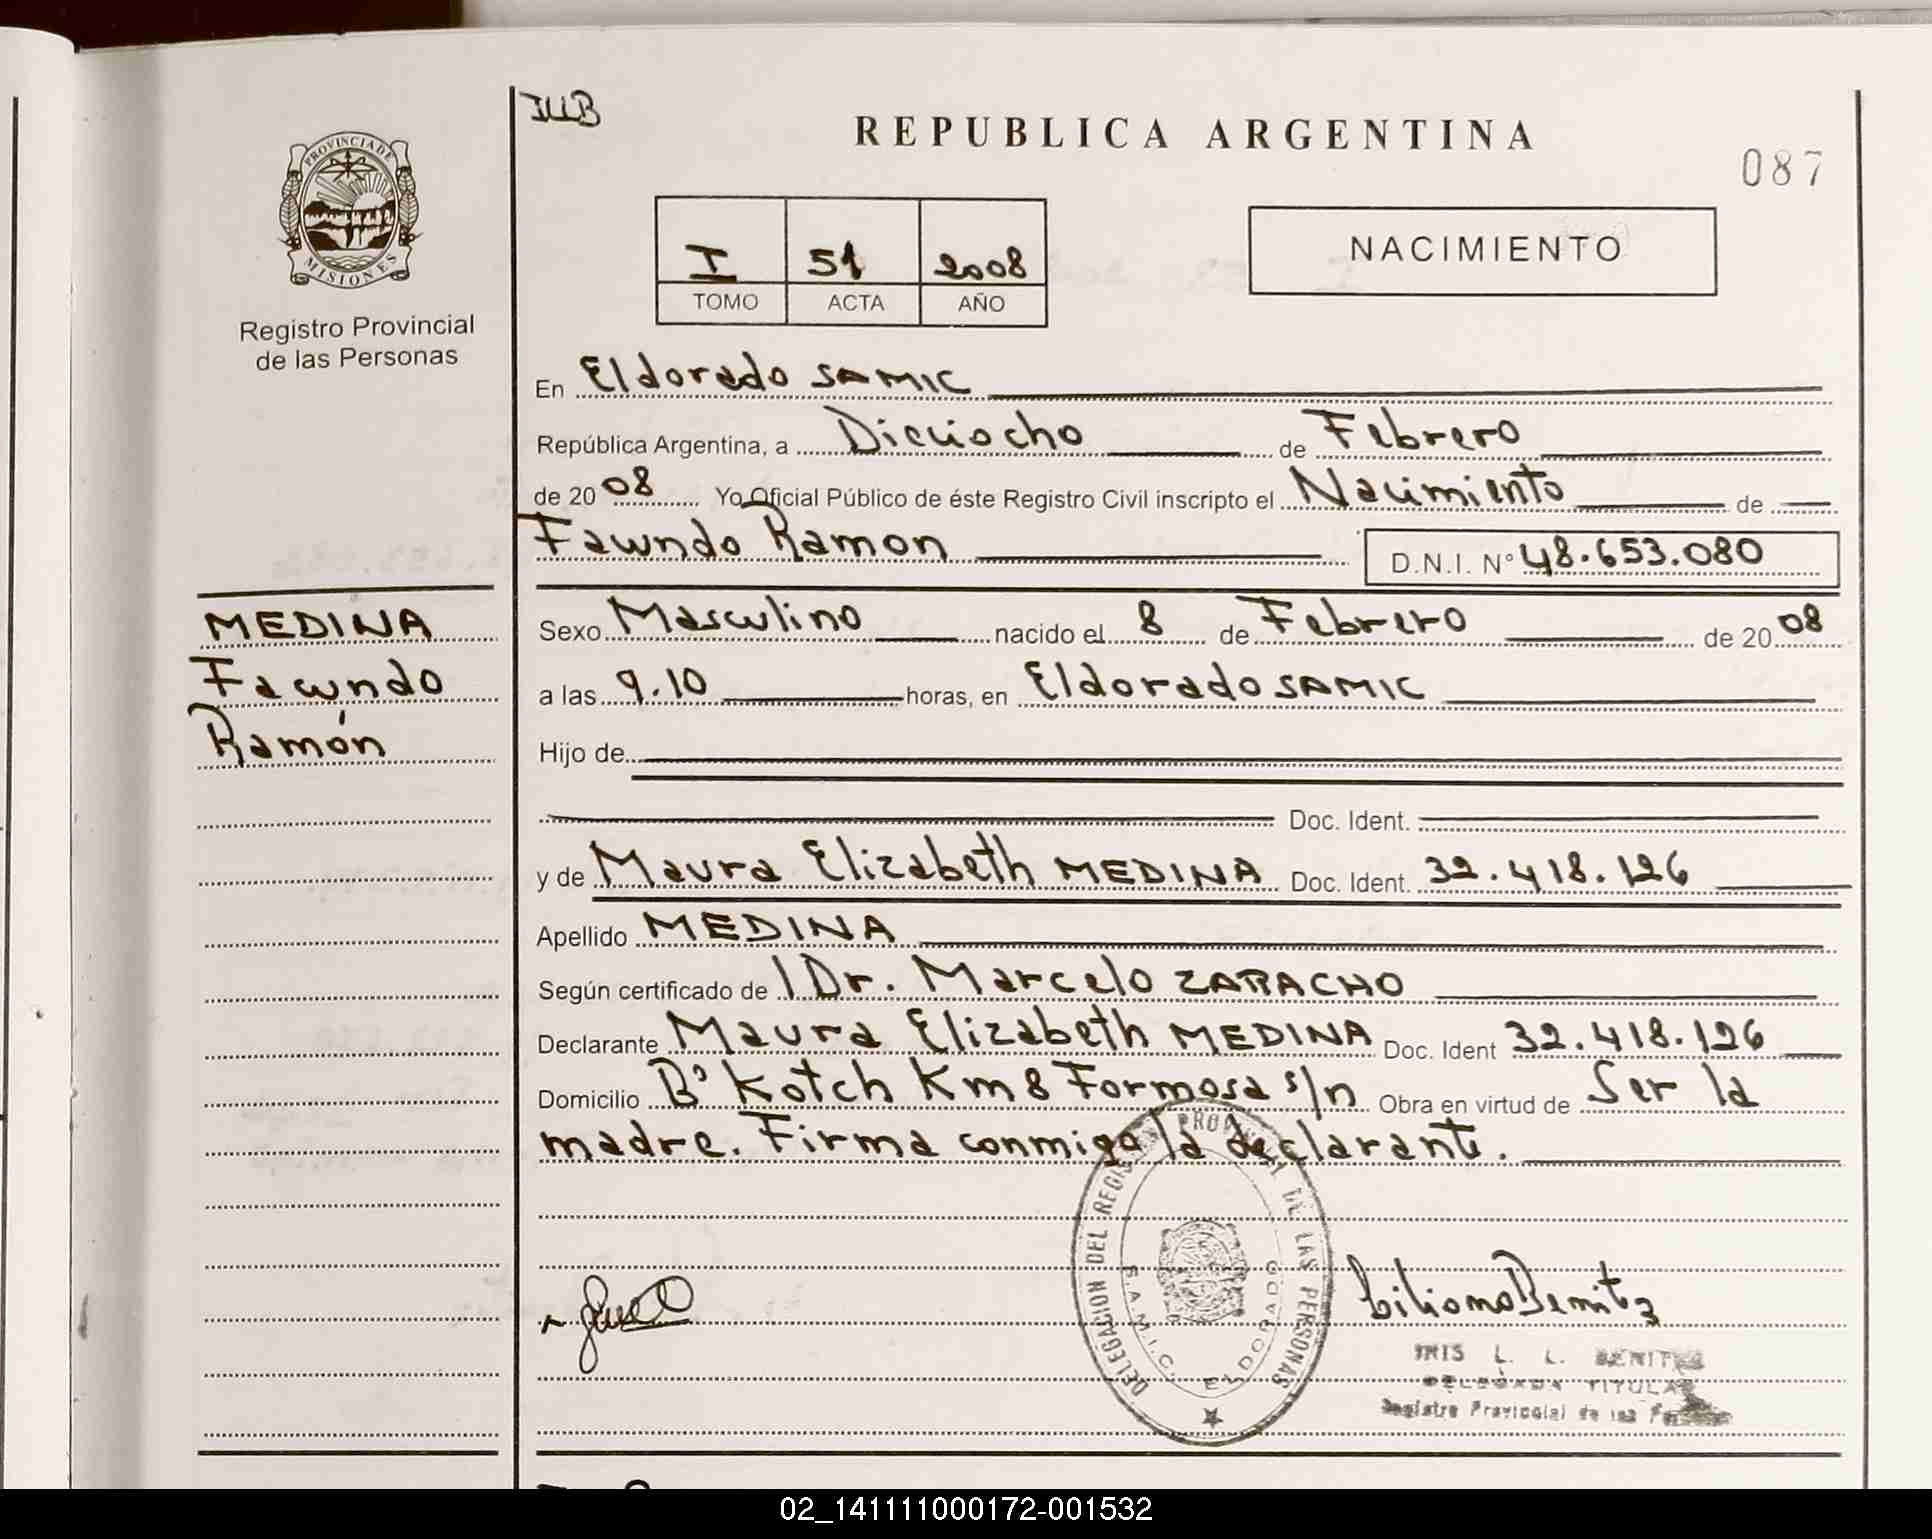 ILLB
REPUBLICA ARGENTINA
087
PROVINCIA DE
MISIONES
Registro Provincial
de las Personas
I 51 2008
TOMO ACTA AÑO
NACIMIENTO
En Eldorado SAMIC
República Argentina, a Dieciocho de Febrero
de 20 08 Yo Oficial Público de éste Registro Civil inscripto el Nacimiento de
Facundo Ramon D.N.I. Nº 48.653.080
MEDINA
Facundo
Ramón
Sexo Masculino nacido el 8 de Febrero de 20 08
a las 9.10 horas, en Eldorado SAMIC
Hijo de
Doc. Ident.
y de Maura Elizabeth MEDINA Doc. Ident. 32.418.126
Apellido MEDINA
Según certificado de Dr. Marcelo ZARACHO
Declarante Maura Elizabeth MEDINA Doc. Ident 32.418.126
Domicilio Bº Kotch Km 8 Formosa s/n Obra en virtud de Ser la
madre. Firma conmigo la declarante.
DELEGACION DEL REGISTRO PROVINCIAL DE LAS PERSONAS
S.A.M.I.C. ELDORADO
Benitez
IRIS L. L. BENITEZ
DELEGADA TITULAR
Registro Provincial de las
02_141111000172-001532